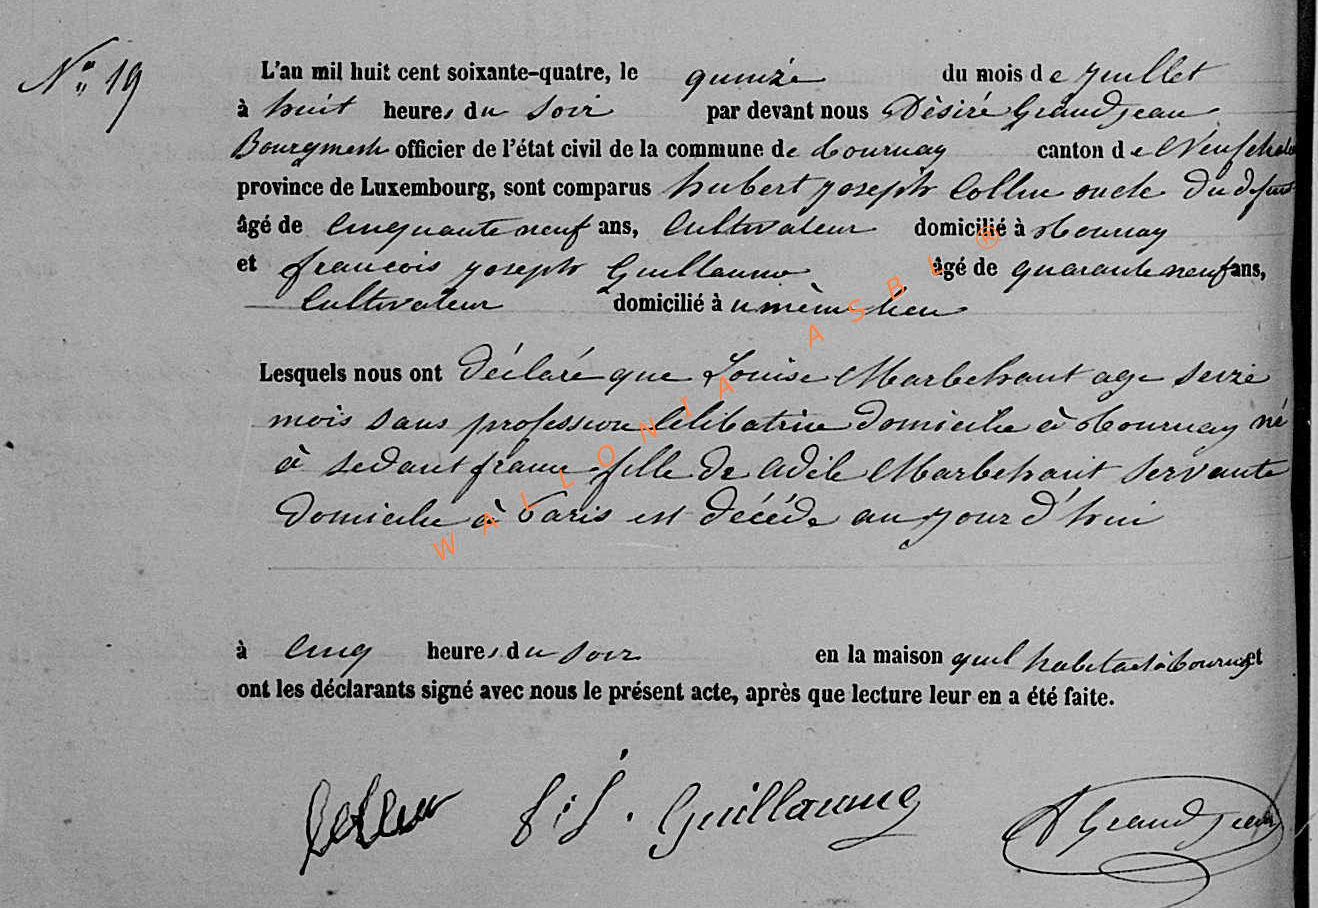 N° 19
L'an mil huit cent soixante-quatre, le quinze du mois de juillet
à huit heures du soir par devant nous Désiré Grandjean
Bourgmestre officier de l'état civil de la commune de Tournay canton de Neufchateau
province de Luxembourg, sont comparus hubert joseph Collin oncle du defunt
âgé de Cinquante neuf ans, Cultivateur domicilié à Tournay
et francois joseph Guillaume âgé de quarante neuf ans,
Cultivateur domicilié à u même lieu
Lesquels nous ont déclaré que Louise Marbehant age seize
mois sans profession Célibatrice domicile à Tournay né
à sedant france fille de adèle Marbehant servante
domicile à Paris est décédé aujourd'hui
à Cinq heures du soir en la maison quil habitait à Tournay et
ont les déclarants signé avec nous le présent acte, après que lecture leur en a été faite.
Collin f. j. Guillaume D Grandjean
WALLONIA ASBL ®